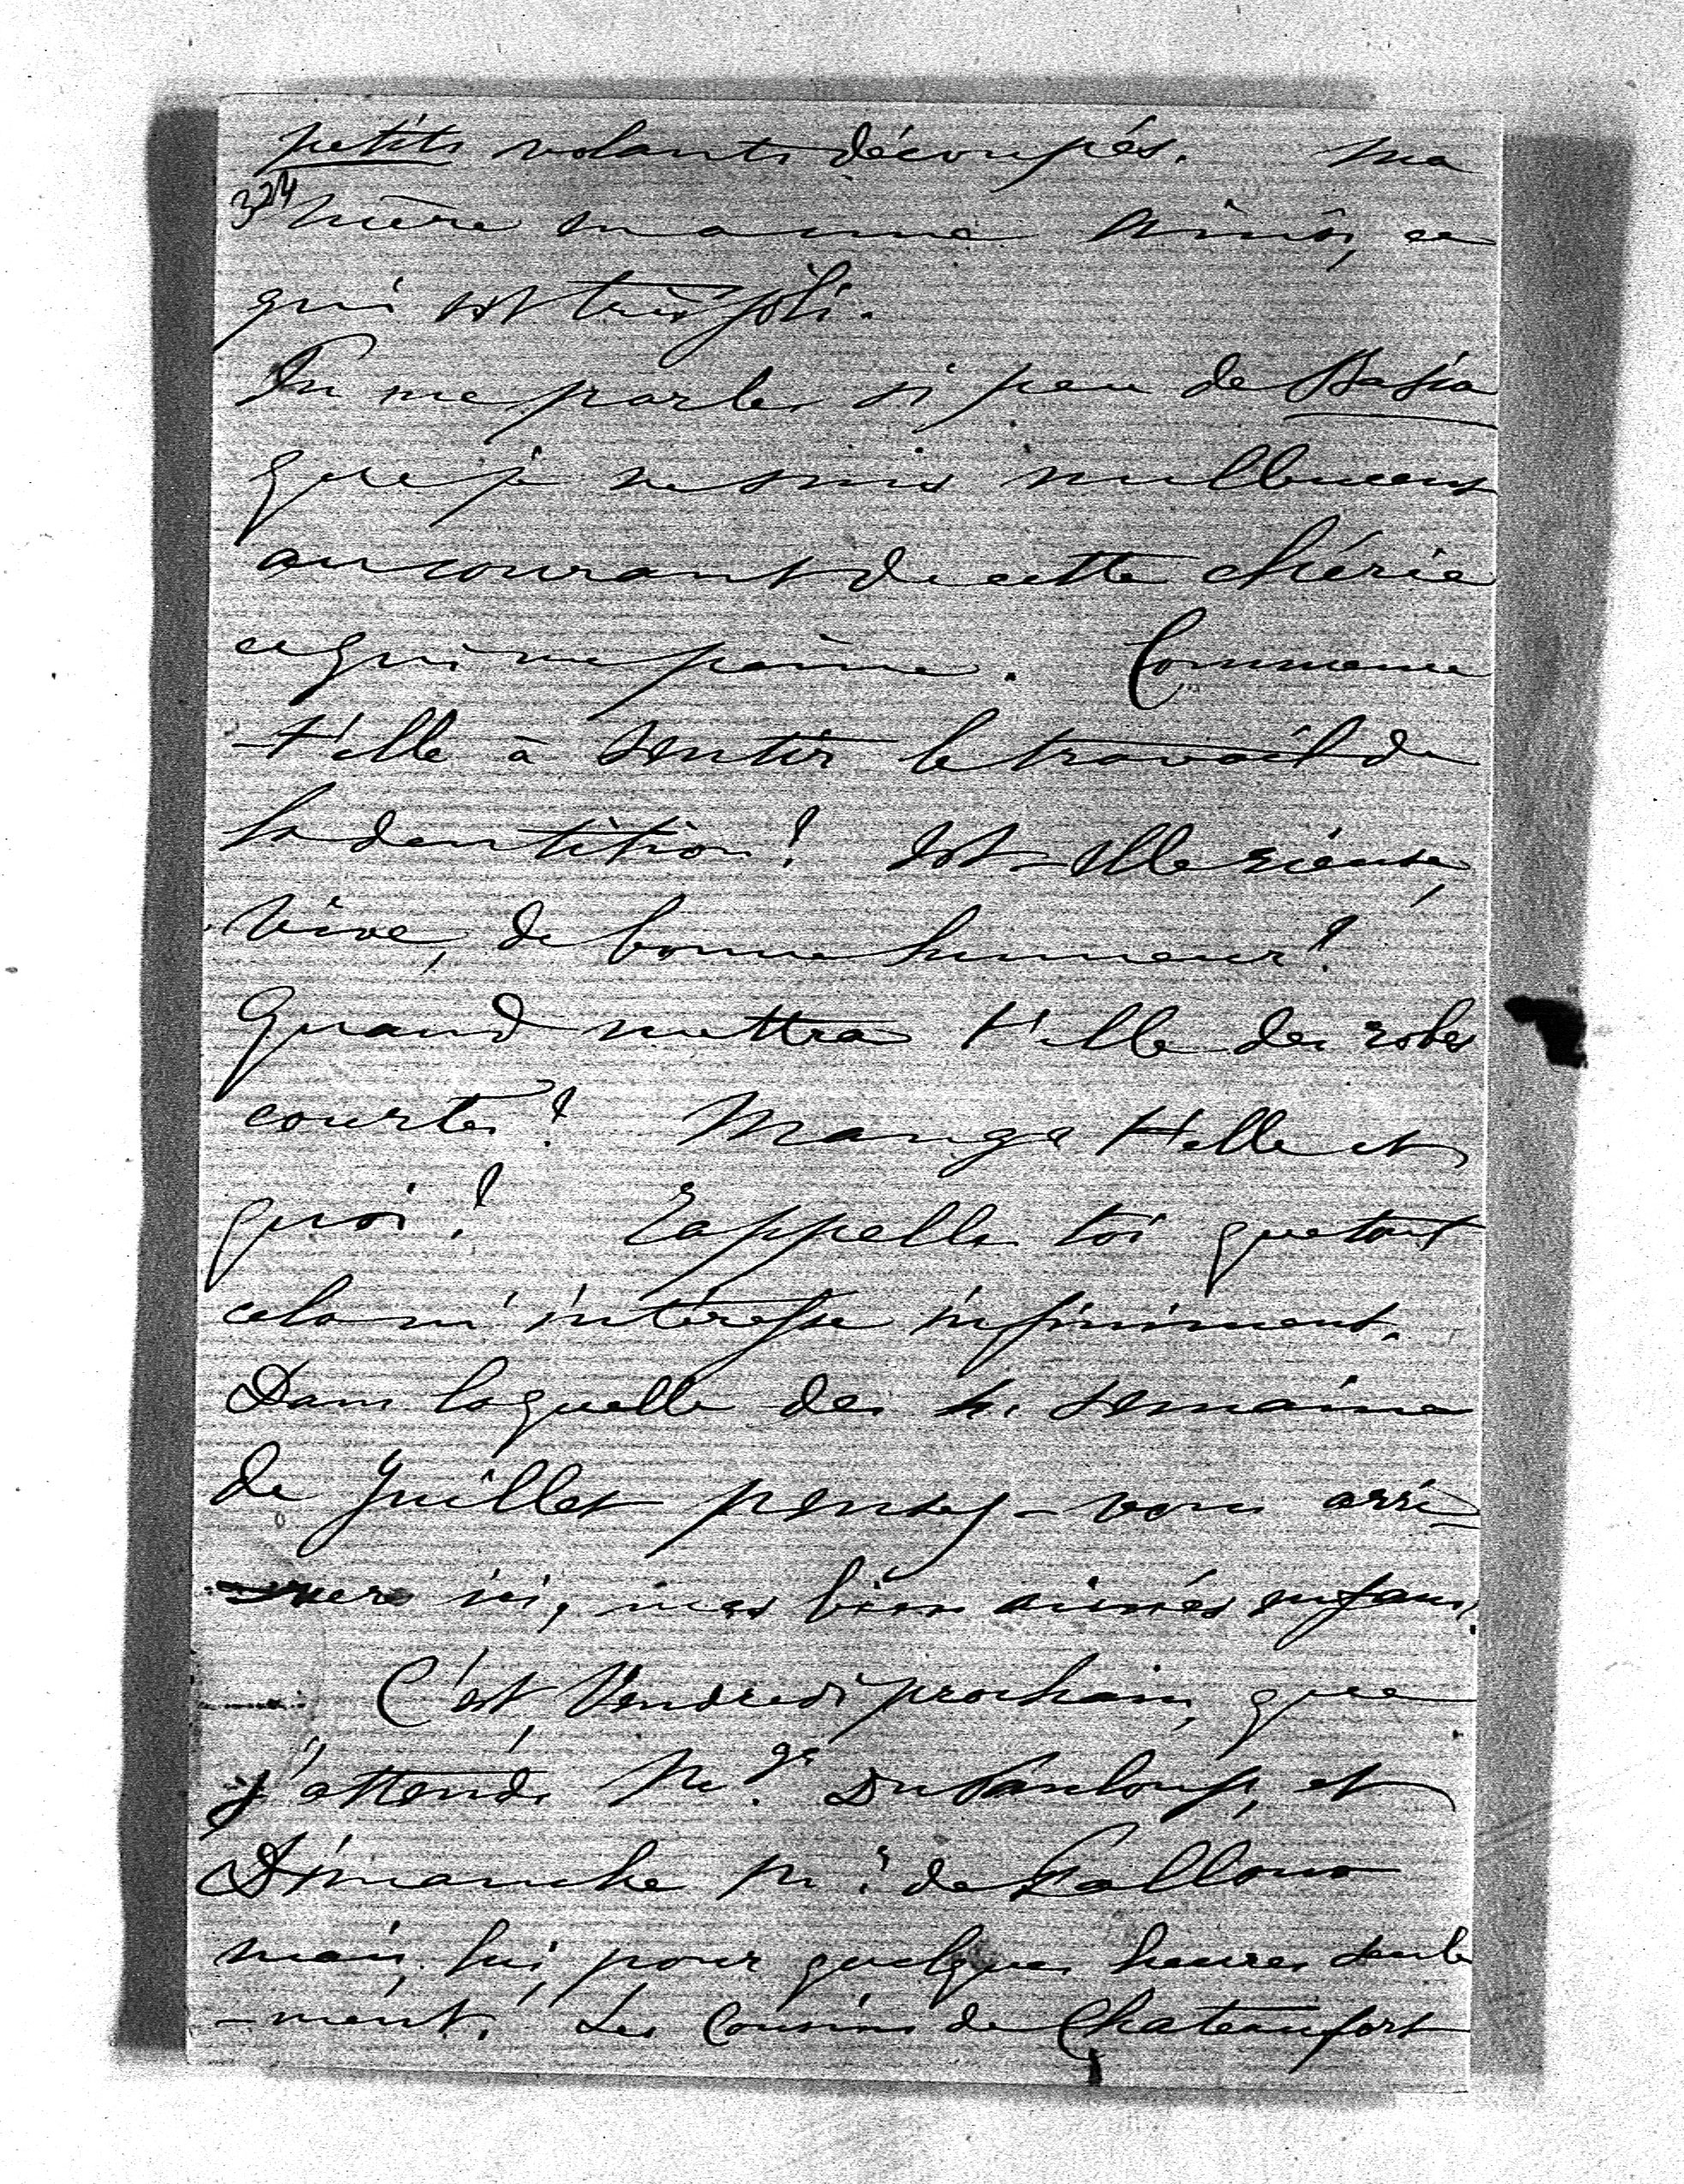 petits volants découpés. Ma
324
mère m'a mise ainsi, ce
qui est très joli.
Tu me parles si peu de Basia
que je ne suis nullement
au courant de cette chérie
ce qui me peine. Commence
-t'elle à sentir le travail de
la dentition? Est-elle rieuse,
vive, de bonne humeur?
Quand mettra t'elle des robes
courtes? Mange t'elle et
quoi? Rappelle toi que tout
cela m'intéresse infiniment.
Dans laquelle des 4 semaines
de Juillet pensez-vous arri-
-ver ici, mes bien aimés enfans.
C'est, Vendredi prochain, que
j'attends Mgr. Dupanloup, et
Dimanche Mr. de Falloux
mais, lui, pour quelques heures seule
-ment. Les Cousins de Chateaufort